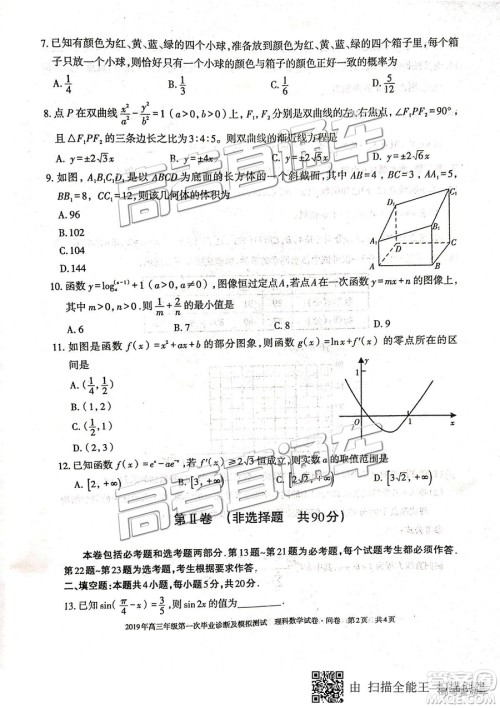 7. 已知有颜色为红、黄、蓝、绿的四个小球，准备放到颜色为红、黄、蓝、绿的四个箱子里，每个箱
子只放一个小球，则恰好只有一个小球的颜色与箱子的颜色正好一致的概率为
A. 1/4 B. 1/3 C. 1/6 D. 5/12
8. 点 P 在双曲线 x²/a² - y²/b² = 1 (a>0, b>0) 上，F₁，F₂分别是双曲线的左、右焦点，∠F₁PF₂ = 90°，
且△F₁PF₂ 的三条边长之比为 3:4:5。则双曲线的渐近线方程是
A. y=±2√3x B. y=±4x C. y=±2√5x D. y=±2√6x
9. 如图，A₁B₁C₁D₁是以 ABCD 为底面的长方体的一个斜截面，其中 AB=4，BC=3，AA₁=5，
BB₁=8，CC₁=12，则该几何体的体积为
A. 96
B. 102
C. 104
D. 144
D₁ C₁ A₁ B₁ D C A B
10. 函数 y=logₐ⁽ˣ⁻¹⁾+1(a>0, a≠0)，图像恒过定点A，若点A在一次函数 y=mx+n 的图像上，
其中 m>0, n>0，则 1/m + 2/n 的最小值是
A. 6 B. 7 C. 8 D. 9
11. 如图是函数 f(x)=x²+ax+b 的部分图象，则函数 g(x)=lnx+f'(x) 的零点所在的区
间是
A. (1/4, 1/2)
B. (1, 2)
C. (1/2, 1)
D. (2, 3)
y 1 O 1 x
12. 已知函数 f(x)=eˣ-ae⁻ˣ，若 f'(x)≥2√3 恒成立，则实数a的取值范围是
A. [2, +∞) B. [3, +∞)
第Ⅱ卷 （非选择题 共90分）
本卷包括必考题和选考题两部分. 第13题~第21题为必考题，每个试题考生都必须作答.
第22题~第23题为选考题，考生根据要求作答.
二、填空题：本题共4小题，每小题5分，共20分.
13. 已知 sin(π/4 - x) = 3/5，则 sin2x 的值为
2019年高三年级第一次毕业诊断及模拟测试 理科数学试卷·问卷 第2页 共4页
高考直通车
高考直通车
由 扫描全能王 扫描创建